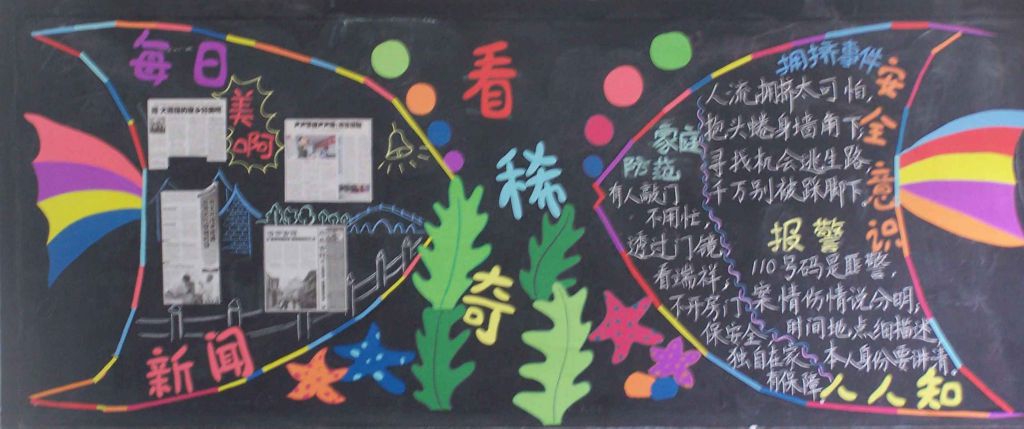 每日
美
啊
新闻
看
稀
奇
拥挤事件
人流拥挤太可怕,
抱头蜷身墙角下,
寻找机会逃生路,
千万别被踩脚下,
家庭
防范
有人敲门
不用忙,
透过门镜
看端祥,
不开房门
保安全,
独自在家
有保障,
报警
110号码是匪警,
案情伤情说分明,
时间地点细描述,
本人身份要讲清,
安全意识
人人知